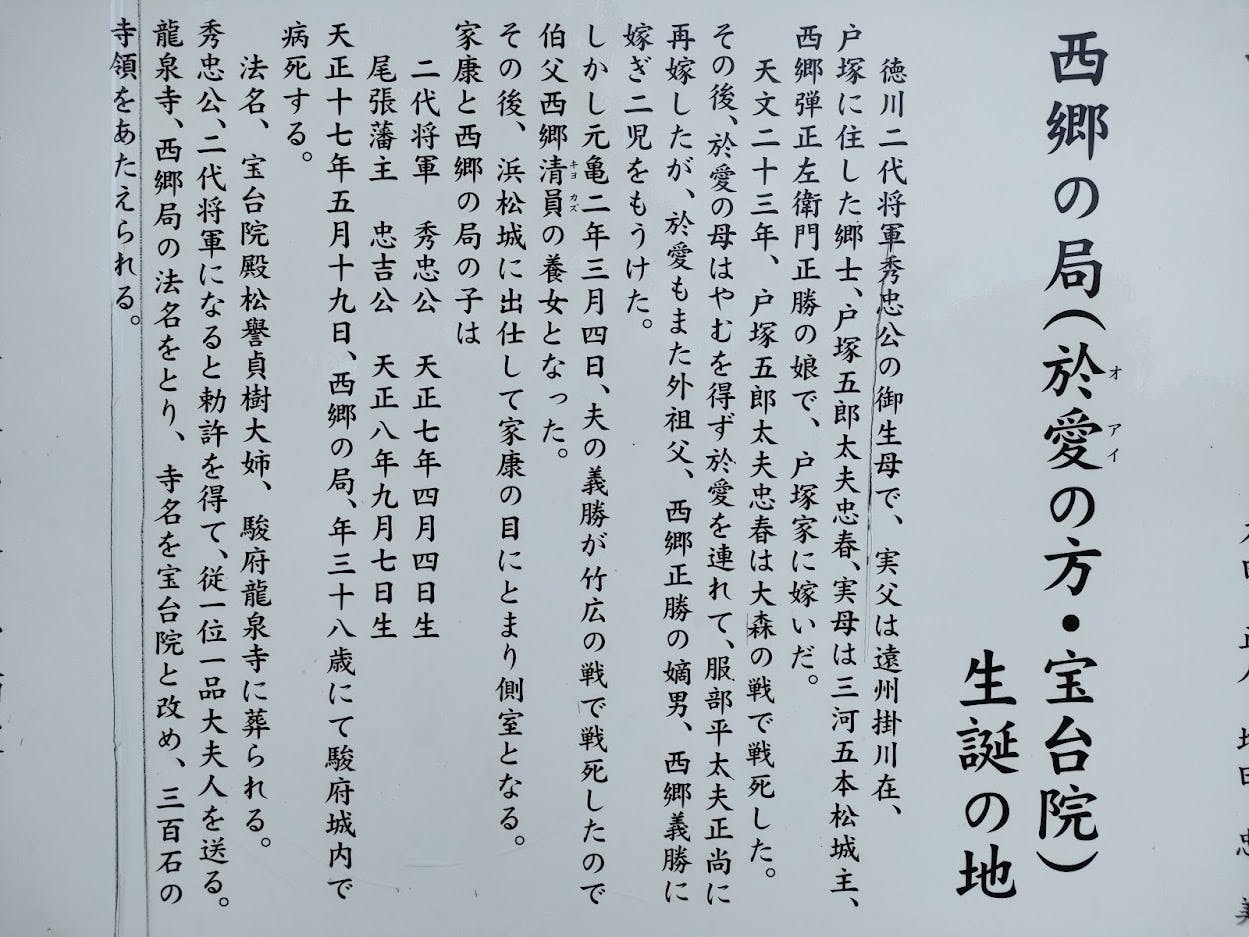 西郷の局(於愛の方・宝台院)
オアイ
生誕の地
徳川二代将軍秀忠公の御生母で、実父は遠州掛川在、
戸塚に住した郷士、戸塚五郎太夫忠春、実母は三河五本松城主、
西郷弾正左衛門正勝の娘で、戸塚家に嫁いだ。
天文二十三年、戸塚五郎太夫忠春は大森の戦で戦死した。
その後、於愛の母はやむを得ず於愛を連れて、服部平太夫正尚に
再嫁したが、於愛もまた外祖父、西郷正勝の嫡男、西郷義勝に
嫁ぎ二児をもうけた。
しかし元亀二年三月四日、夫の義勝が竹広の戦で戦死したので
伯父西郷清員の養女となった。
キヨカズ
その後、浜松城に出仕して家康の目にとまり側室となる。
家康と西郷の局の子は
二代将軍 秀忠公 天正七年四月四日生
尾張藩主 忠吉公 天正八年九月七日生
天正十七年五月十九日、西郷の局、年三十八歳にて駿府城内で
病死する。
法名、宝台院殿松誉貞樹大姉、駿府龍泉寺に葬られる。
秀忠公、二代将軍になると勅許を得て、従一位一品大夫人を送る。
龍泉寺、西郷局の法名をとり、寺名を宝台院と改め、三百石の
寺領をあたえられる。